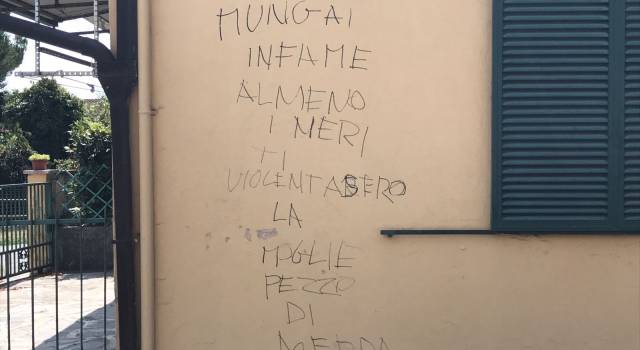 MUNGAI
INFAME
ALMENO
I NERI
TI
VIOLENTASERO
LA
MOGLIE
PEZZO
DI
MERDA